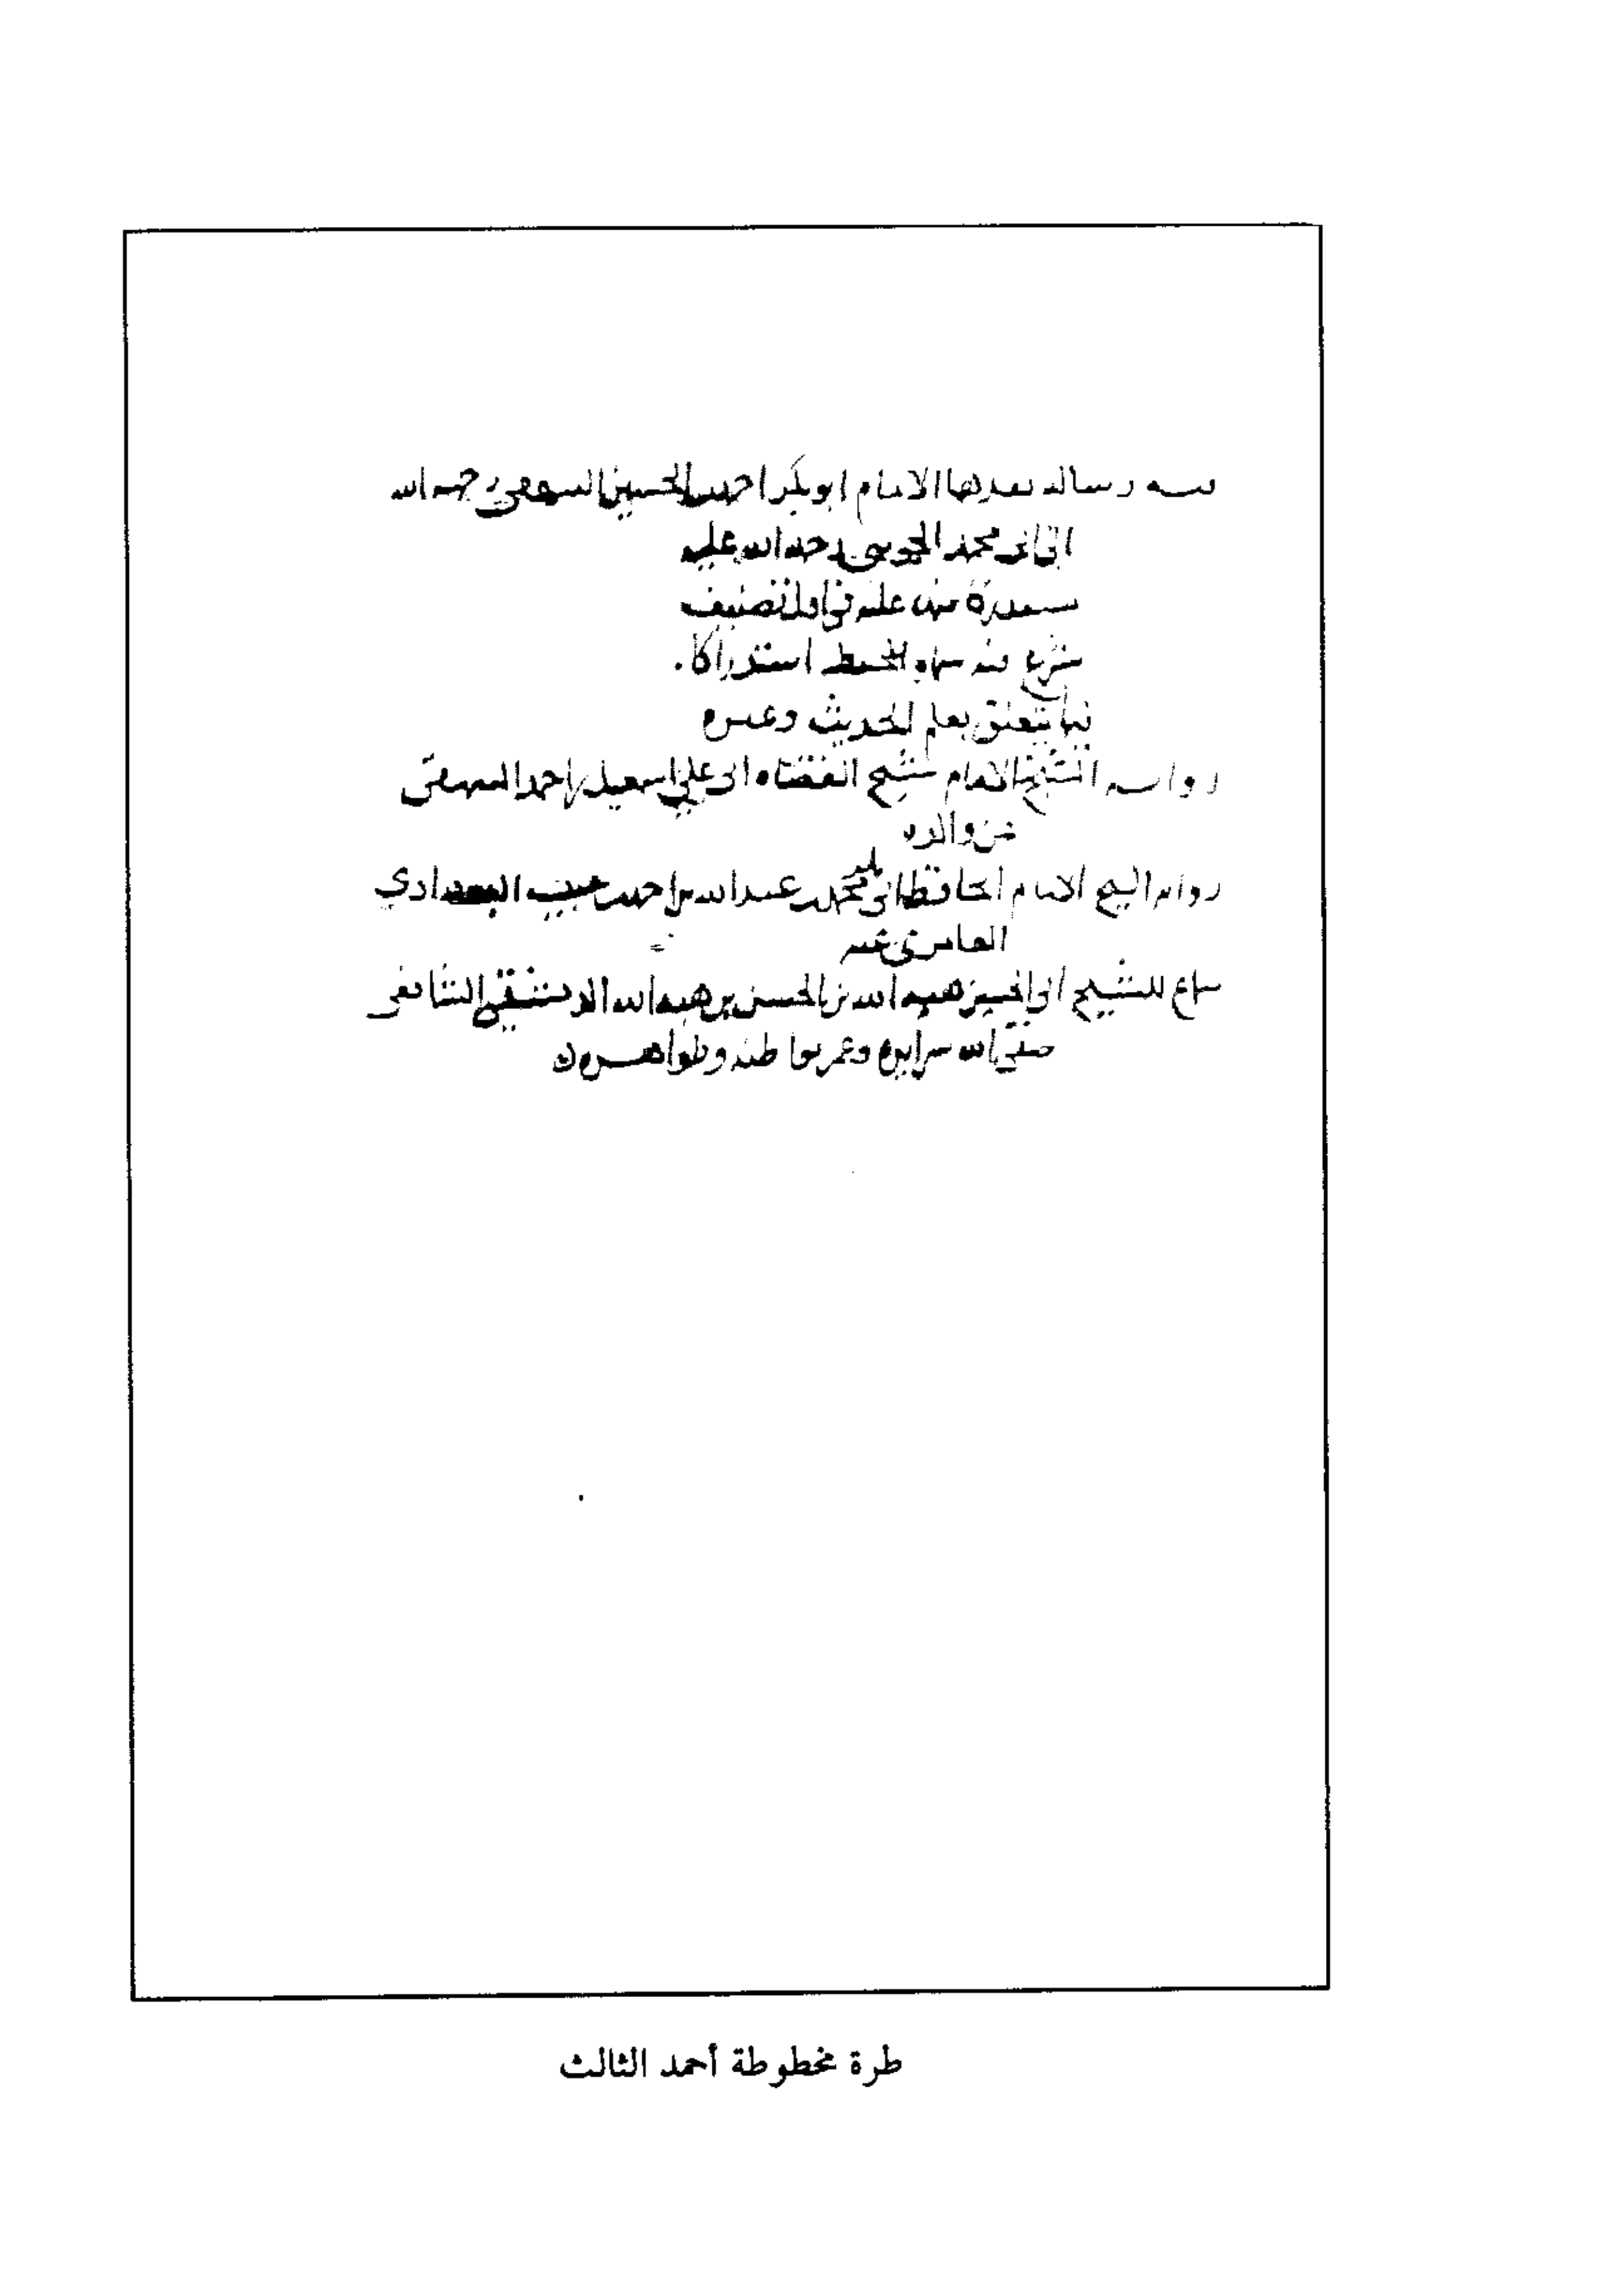 فيه رسالة بعث بها الامام ابو بكر احمد بن الحسين البيهقي رحمه الله
الى ابى محمد الجوينى رحمة الله عليه
علىه في اول تصنيف
شرع فيه سماه المحيط استدراكا
فيما يتعلق بعلم الحديث وغيره
رواية الشيخ الامام شيخ القضاه ابى علي اسمعيل بن احمد البيهقى
عن والده
رواية الشيخ الامام الحافظ ابى محمد عبد الله بن احمد بن البغدادي
عنه
سماع للشيخ ابى الحسين هبة الله بن الحسن بن هبة الله الدمشقي الشافعى
الله سرايره وعمر بواطنه وظواهره
طرة مخطوطة أحمد الثالث